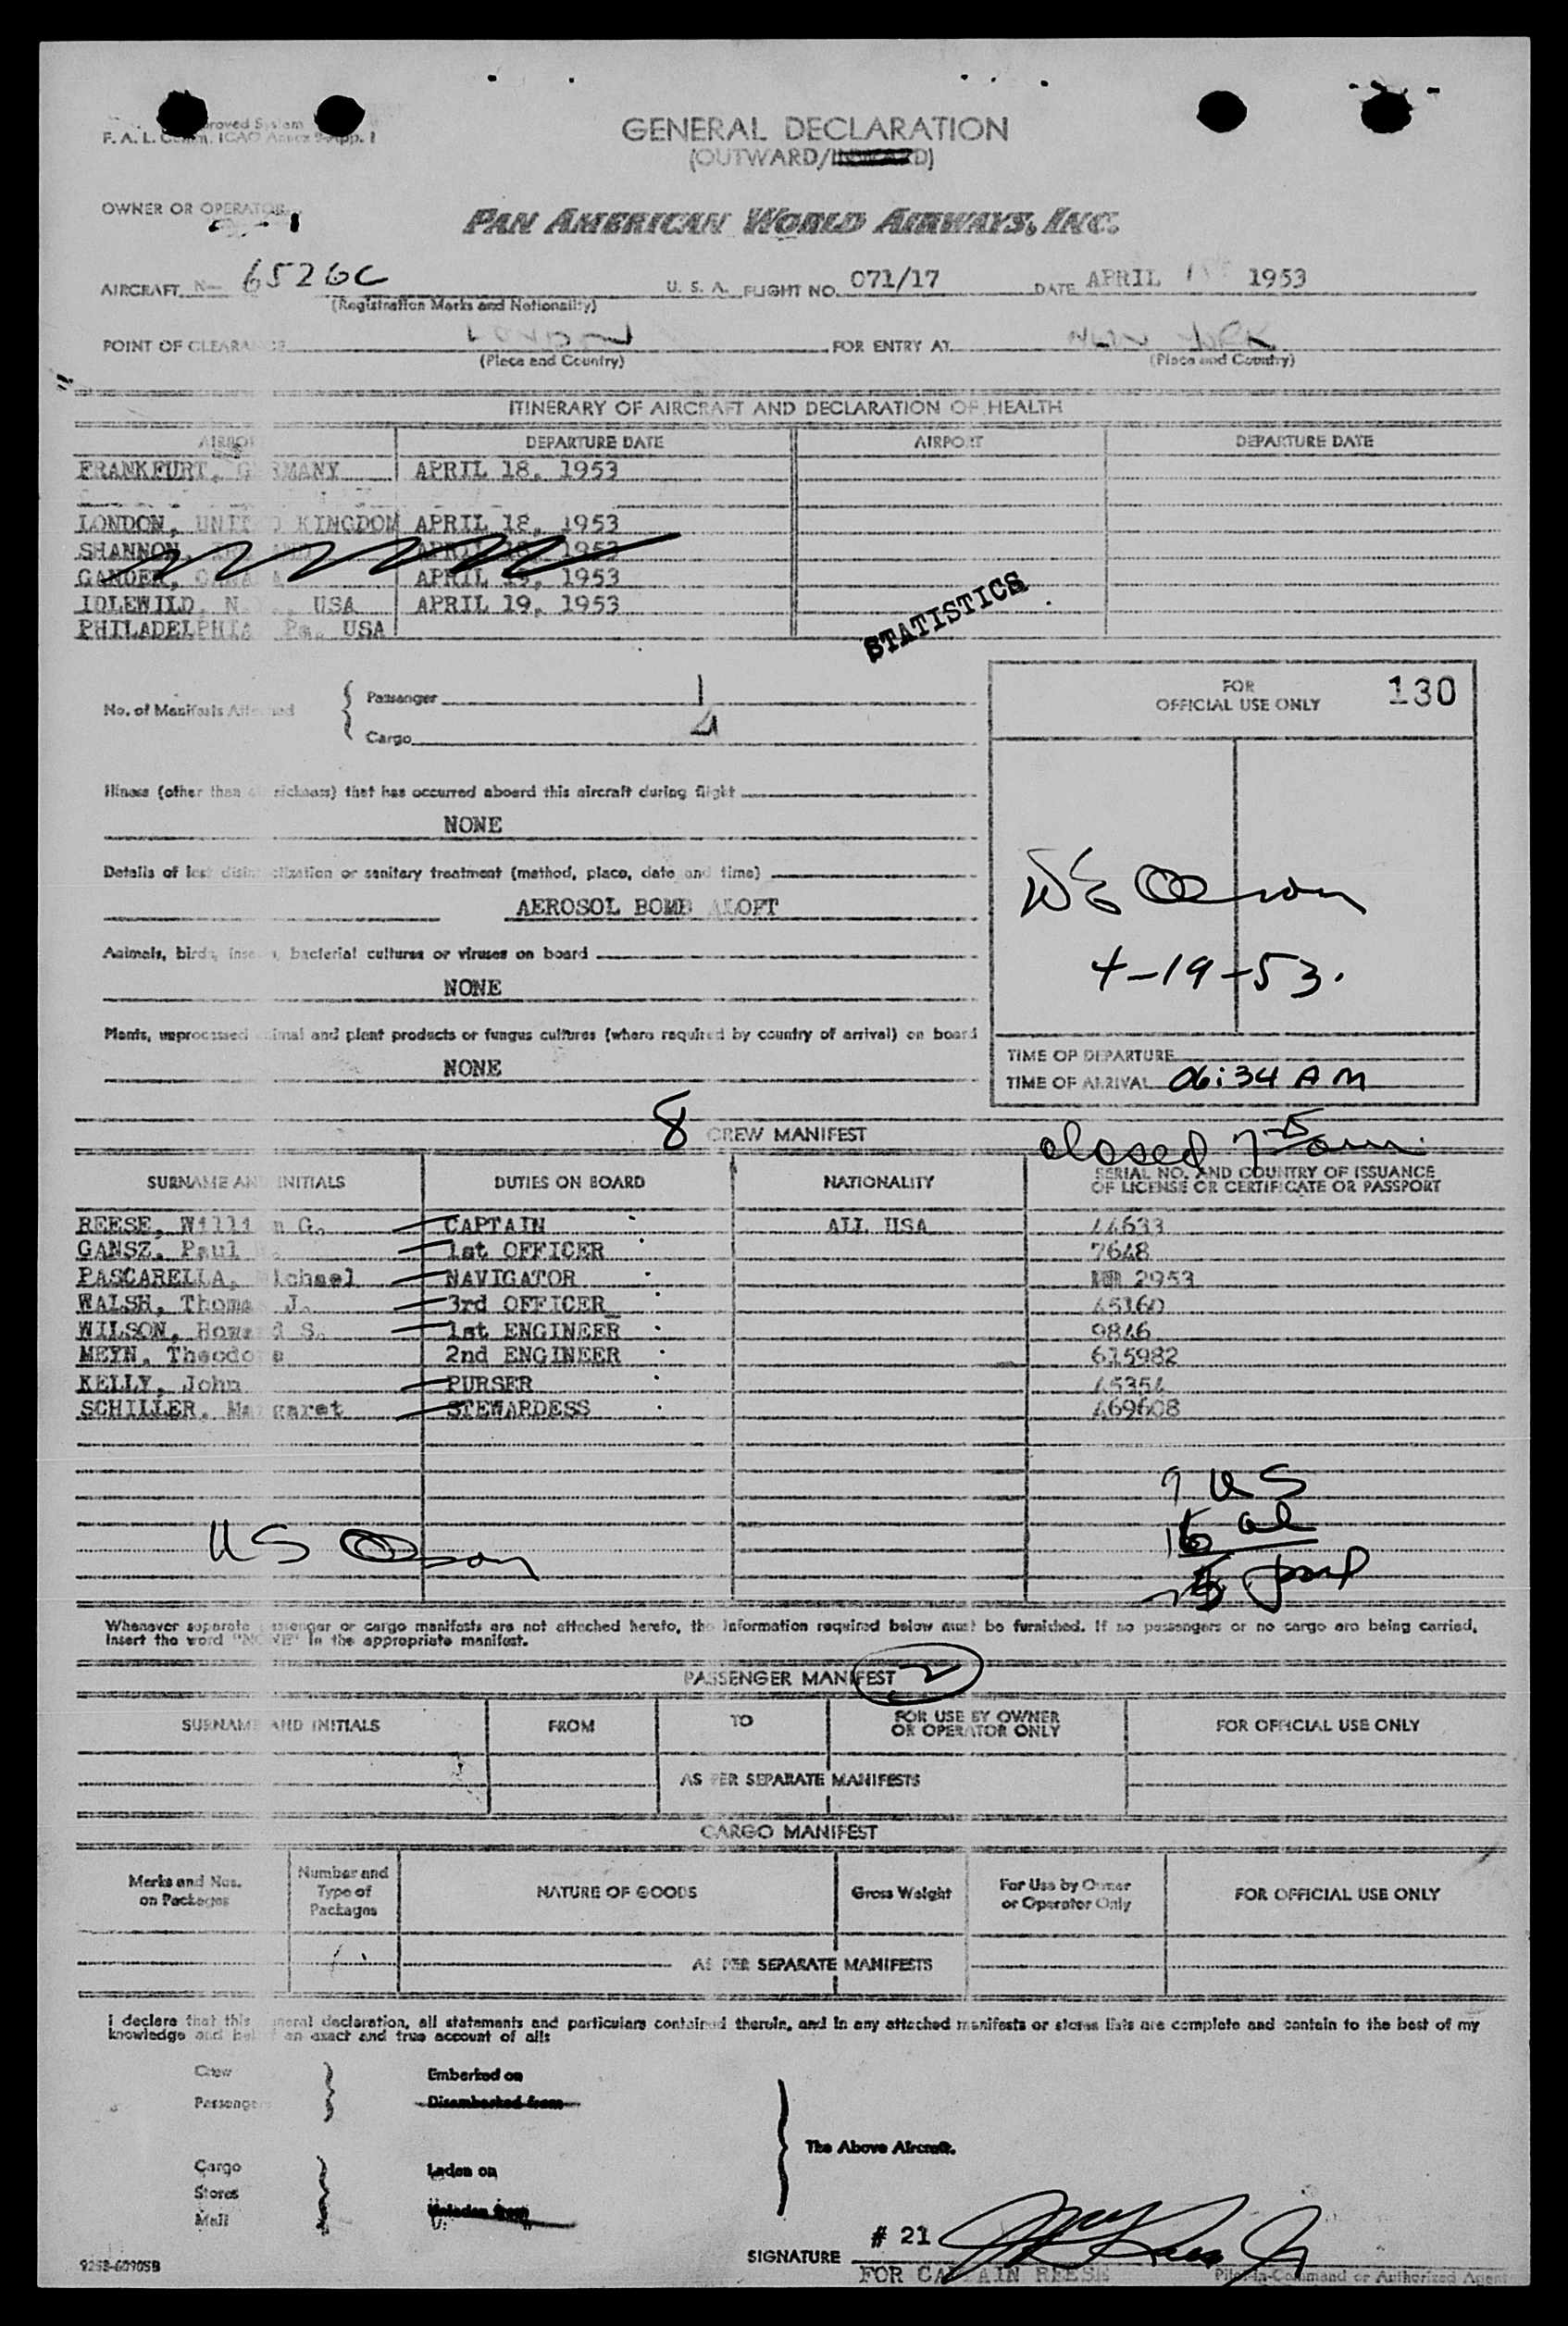 GENERAL DECLARATION
(OUTWARD/INWARD)
F. A. L. ICAO Annex 9-App. 1
OWNER OR OPERATOR
PAN AMERICAN WORLD AIRWAYS, INC.
AIRCRAFT N- 6526C U. S. A. FLIGHT NO. 071/17 DATE APRIL 1953
(Registration Marks and Nationality)
POINT OF CLEARANCE LONDON FOR ENTRY AT NEW YORK
(Place and Country) (Place and Country)
ITINERARY OF AIRCRAFT AND DECLARATION OF HEALTH
AIRPORT DEPARTURE DATE AIRPORT DEPARTURE DATE
FRANKFURT, GERMANY APRIL 18, 1953
LONDON, UNITED KINGDOM APRIL 18, 1953
SHANNON, APRIL 18, 1953
GANDER, CANADA APRIL 19, 1953
IDLEWILD, N.Y., USA APRIL 19, 1953
PHILADELPHIA Pa. USA
STATISTICS
No. of Manifests Attached
Passenger 1
Cargo 4
FOR OFFICIAL USE ONLY 130
Illness (other than airsickness) that has occurred aboard this aircraft during flight
NONE
Details of last disinsectization or sanitary treatment (method, place, date and time)
AEROSOL BOMB ALOFT
Animals, birds, insects, bacterial cultures or viruses on board
NONE
Plants, unprocessed animal and plant products or fungus cultures (where required by country of arrival) on board
NONE
4-19-53.
TIME OF DEPARTURE
TIME OF ARRIVAL 06:34 AM
8 CREW MANIFEST
closed 7 am
SURNAME AND INITIALS DUTIES ON BOARD NATIONALITY SERIAL NO. AND COUNTRY OF ISSUANCE
OF LICENSE OR CERTIFICATE OR PASSPORT
REESE, William G. CAPTAIN ALL USA 44633
GANSZ, Paul 1st OFFICER 7648
PASCARELLA, Michael NAVIGATOR 2953
WALSH, Thomas J. 3rd OFFICER 45160
WILSON, Howard S. 1st ENGINEER 9846
MEYN, Theodore 2nd ENGINEER 615982
KELLY, John PURSER 45354
SCHILLER, Margaret STEWARDESS 469608
9 US
16 al
Whenever separate passenger or cargo manifests are not attached hereto, the information required below must be furnished. If no passengers or no cargo are being carried,
insert the word "NONE" in the appropriate manifest.
PASSENGER MANIFEST 2
SURNAME AND INITIALS FROM TO FOR USE BY OWNER OR OPERATOR ONLY FOR OFFICIAL USE ONLY
AS PER SEPARATE MANIFESTS
CARGO MANIFEST
Marks and Nos. on Packages Number and Type of Packages NATURE OF GOODS Gross Weight For Use by Owner or Operator Only FOR OFFICIAL USE ONLY
AS PER SEPARATE MANIFESTS
I declare that this general declaration, all statements and particulars contained therein, and in any attached manifests or stores lists are complete and contain to the best of my
knowledge and belief an exact and true account of all:
Crew Embarked on
Passengers Disembarked from
The Above Aircraft.
Cargo Laden on
Stores
Mail Unladen from
# 21
SIGNATURE
FOR CAPTAIN REESE Pilot-in-Command or Authorized Agent
9258-60905B